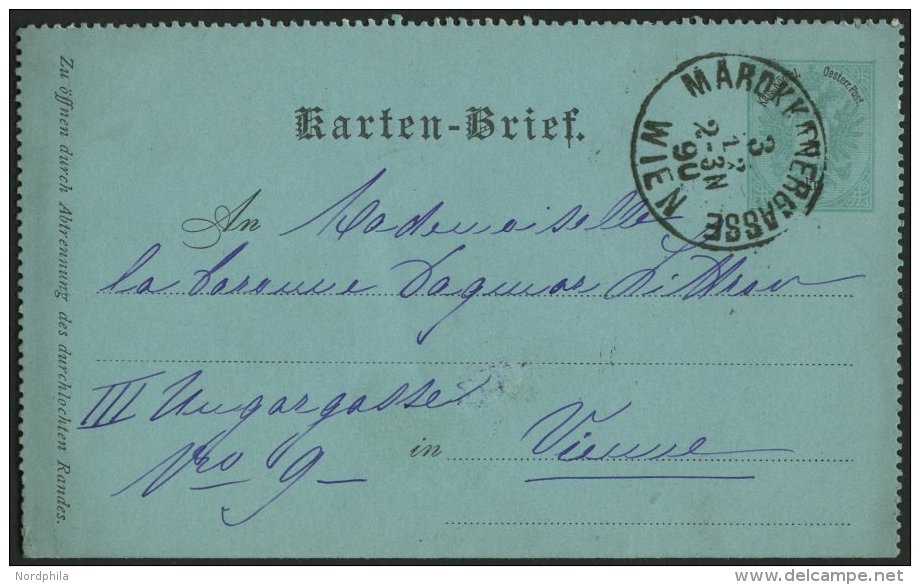 Karten-Brief.
MAROKKANERGASSE WIEN
3
12
2-3N
90
Oesterr. Post
An Mademoiselle
la baronne Dagmar Littrow
III Ungargasse
Nro 9 in Vienne
Zu öffnen durch Abtrennung des durchlochten Randes.
Nordphila
delcampe.net